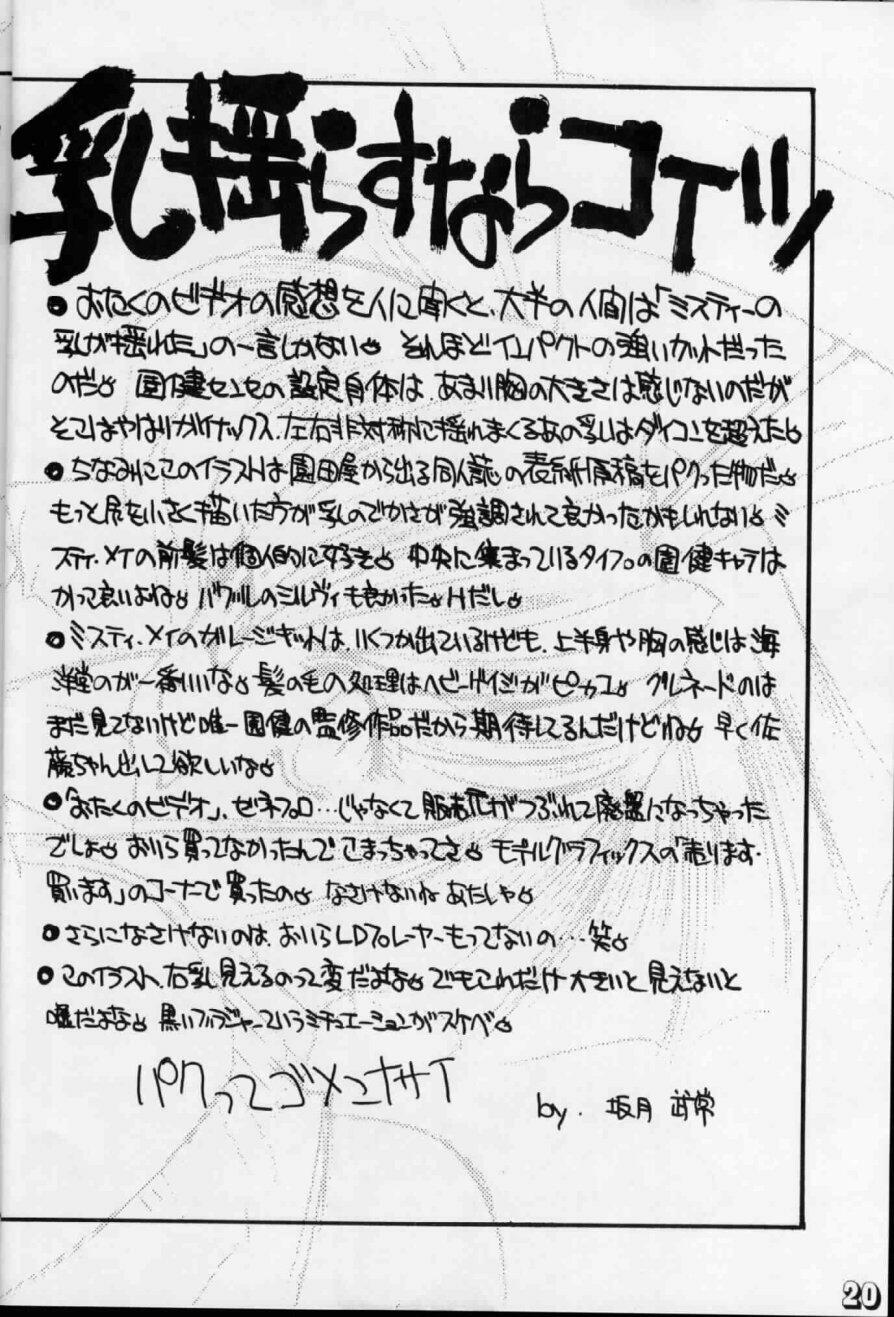 乳揺らすならコイツ
●おたくのビデオの感想を人に聞くと、大半の人間は「ミスティーの
乳が揺れた」の一言しかない。それほどインパクトの強いカットだった
のだ。園健センセの設定自体は、あまり胸の大きさは感じないのだが
そこはやはりガイナックス、左右非対称に揺れまくるあの乳はダイコンを超えた。
●ちなみにこのイラストは園田屋から出る同人誌の表紙原稿をパクった物だ。
もっと尻を小さく描いた方が乳のでかさが強調されて良かったかもしれない。ミ
スティ・メイの前髪は個人的に好き。中央に集まっているタイプの園健キャラは
かって良いよね。バブルのシルヴィも良かった。Hだし。
●ミスティ・メイのガレージキットは、いくつか出ているけども、上半身や胸の感じは海
洋堂のが一番いいな。髪の毛の処理はヘビーゲイジがピカ一。グレネードのは
まだ見てないけど唯一園健の監修作品だから期待してるんだけどね。早く佐
藤ちゃん出して欲しいな。
●「おたくのビデオ」、ゼネプロ…じゃなくて販売元がつぶれて廃盤になっちゃった
でしょ。おいら買ってなかったんでこまっちゃってさ。モデルグラフィックスの「売ります・
買います」のコーナーで買ったの。なさけないねあたしゃ。
●さらになさけないのは、おいらLDプレーヤーもってないの…笑。
●このイラスト、右乳見えるのって変だよな。でもこれだけ大きいと見えないと
嘘だよな。黒いブラジャーっていうシチュエーションがスケベ。
パクってゴメンナサイ
by. 坂月 武常
20